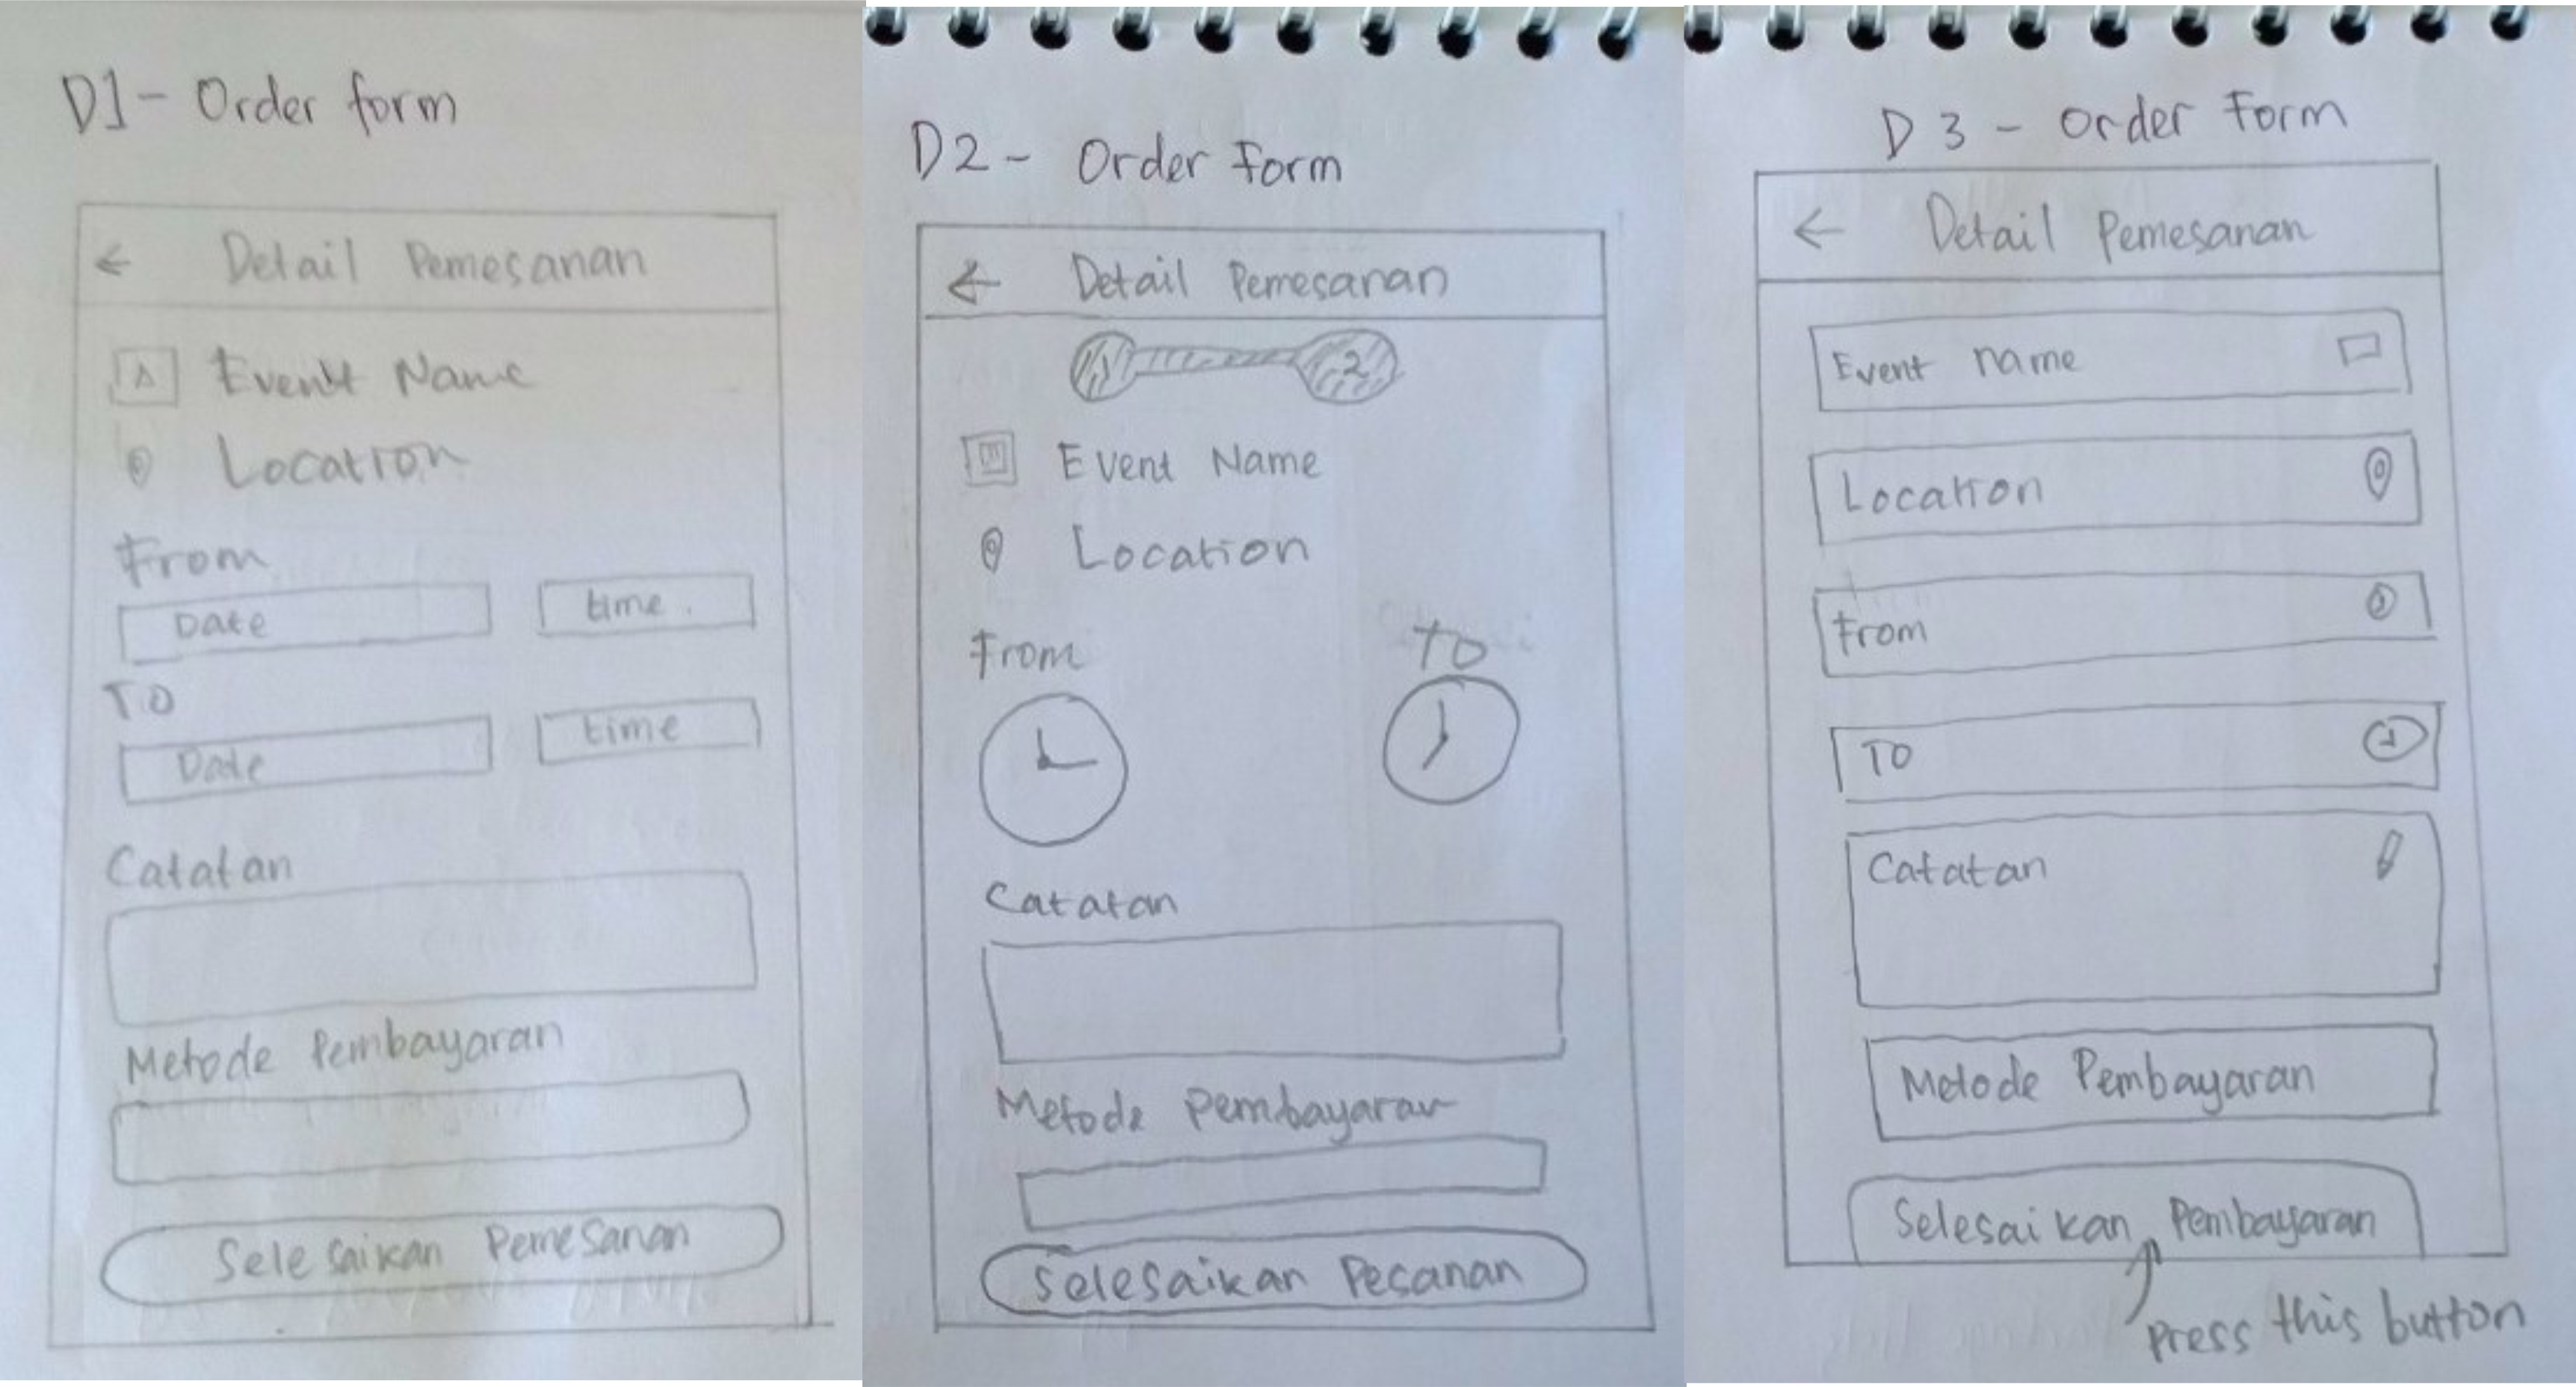 D1 - Order form
← Detail Pemesanan
Event Name
Location
From
Date time.
TO
Date time
Catatan
Metode Pembayaran
Selesaikan Pemesanan
D2 - Order Form
← Detail Pemesanan
1 2
Event Name
Location
From TO
Catatan
Metode Pembayaran
Selesaikan Pesanan
D3 - Order Form
← Detail Pemesanan
Event name
Location
From
TO
Catatan
Metode Pembayaran
Selesaikan Pembayaran
press this button